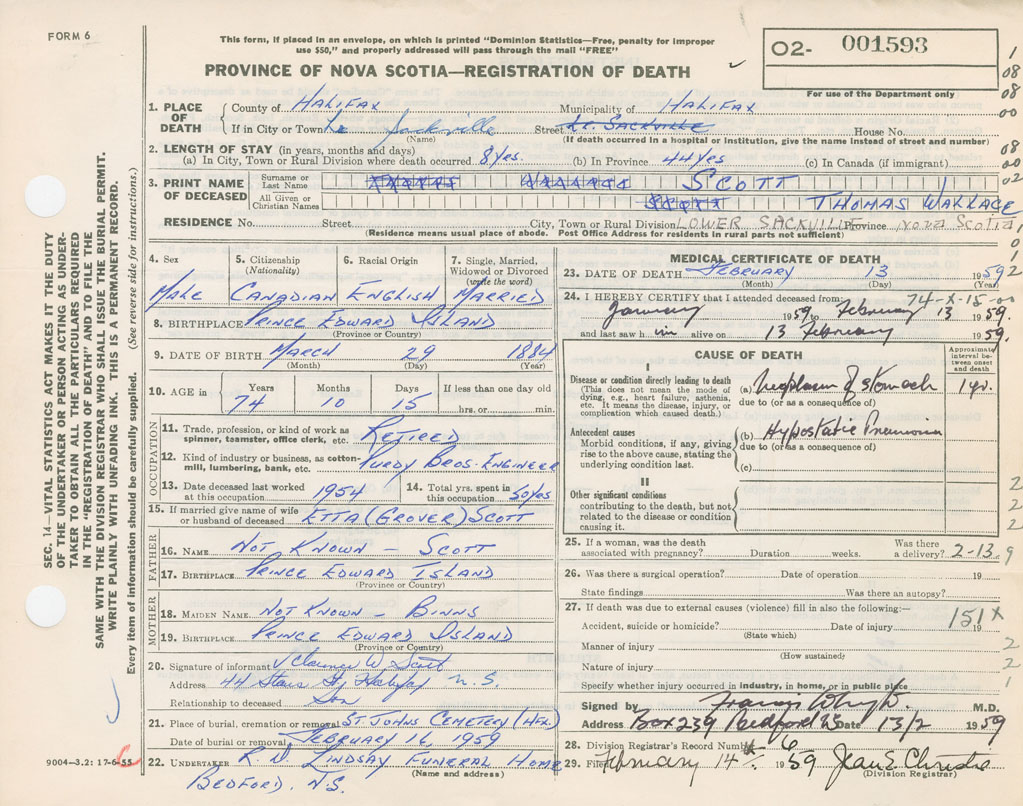 FORM 6
This form, if placed in an envelope, on which is printed "Dominion Statistics—Free, penalty for improper
use $50," and properly addressed will pass through the mail "FREE"
PROVINCE OF NOVA SCOTIA—REGISTRATION OF DEATH
O2- 001593
For use of the Department only
1. PLACE OF DEATH County of HALIFAX Municipality of HALIFAX
If in City or Town Lr Sackville Street Lr. SACKVILLE House No.
(Name) (If death occurred in a hospital or institution, give the name instead of street and number)
2. LENGTH OF STAY (in years, months and days)
(a) In City, Town or Rural Division where death occurred 8 yrs. (b) In Province 44 yrs (c) In Canada (if immigrant)
3. PRINT NAME OF DECEASED Surname or Last Name SCOTT
All Given or Christian Names THOMAS WALLACE
RESIDENCE No. Street City, Town or Rural Division LOWER SACKVILLE Province Nova Scotia
(Residence means usual place of abode. Post Office Address for residents in rural parts not sufficient)
SEC. 14—VITAL STATISTICS ACT MAKES IT THE DUTY
OF THE UNDERTAKER OR PERSON ACTING AS UNDER-
TAKER TO OBTAIN ALL THE PARTICULARS REQUIRED
IN THE "REGISTRATION OF DEATH" AND TO FILE THE
SAME WITH THE DIVISION REGISTRAR WHO SHALL ISSUE THE BURIAL PERMIT.
WRITE PLAINLY WITH UNFADING INK. THIS IS A PERMANENT RECORD.
Every item of information should be carefully supplied. (See reverse side for instructions.)
4. Sex 5. Citizenship (Nationality) 6. Racial Origin 7. Single, Married, Widowed or Divorced (write the word)
MALE CANADIAN ENGLISH MARRIED
8. BIRTHPLACE PRINCE EDWARD ISLAND
(Province or Country)
9. DATE OF BIRTH MARCH 29 1884
(Month) (Day) (Year)
10. AGE in Years Months Days If less than one day old
74 10 15 hrs. or min.
OCCUPATION
11. Trade, profession, or kind of work as spinner, teamster, office clerk, etc. RETIRED
12. Kind of industry or business, as cotton-mill, lumbering, bank, etc. PURDY BROS. ENGINEER
13. Date deceased last worked at this occupation 1954 14. Total yrs. spent in this occupation 50 yrs
15. If married give name of wife or husband of deceased ETTA (GROVER) SCOTT
FATHER
16. NAME NOT KNOWN – SCOTT
17. BIRTHPLACE PRINCE EDWARD ISLAND
(Province or Country)
MOTHER
18. MAIDEN NAME NOT KNOWN – BINNS
19. BIRTHPLACE PRINCE EDWARD ISLAND
(Province or Country)
20. Signature of informant Clarence W Scott
Address 44 Stairs St Halifax N.S.
Relationship to deceased Son
21. Place of burial, cremation or removal ST JOHNS CEMETERY (HFX.)
Date of burial or removal FEBRUARY 16, 1959
22. UNDERTAKER R. D. LINDSAY FUNERAL HOME
(Name and address)
BEDFORD, N.S.
9004—3.2: 17-6-55
MEDICAL CERTIFICATE OF DEATH
23. DATE OF DEATH FEBRUARY 13 1959
(Month) (Day) (Year)
74-X-15-00
24. I HEREBY CERTIFY that I attended deceased from
January 1959 to February 13 1959.
and last saw him alive on 13 February 1959.
CAUSE OF DEATH
Approximate interval between onset and death
I
Disease or condition directly leading to death
(This does not mean the mode of dying, e.g., heart failure, asthenia, etc. It means the disease, injury, or complication which caused death.)
(a) Neoplasm of stomach 1 yr.
due to (or as a consequence of)
Antecedent causes
Morbid conditions, if any, giving rise to the above cause, stating the underlying condition last.
(b) Hypostatic Pneumonia
due to (or as a consequence of)
(c)
II
Other significant conditions
contributing to the death, but not related to the disease or condition causing it.
25. If a woman, was the death associated with pregnancy? Duration weeks. Was there a delivery? 2-13.9
26. Was there a surgical operation? Date of operation 19
State findings Was there an autopsy?
27. If death was due to external causes (violence) fill in also the following:—
Accident, suicide or homicide? Date of injury 19
151X
(State which)
Manner of injury
(How sustained)
Nature of injury
Specify whether injury occurred in industry, in home, or in public place
Signed by M.D.
Address Box 239 Bedford NS Date 13/2 1959
28. Division Registrar's Record Number 6
29. Filed February 14 1959 Jean E. Christie
(Division Registrar)